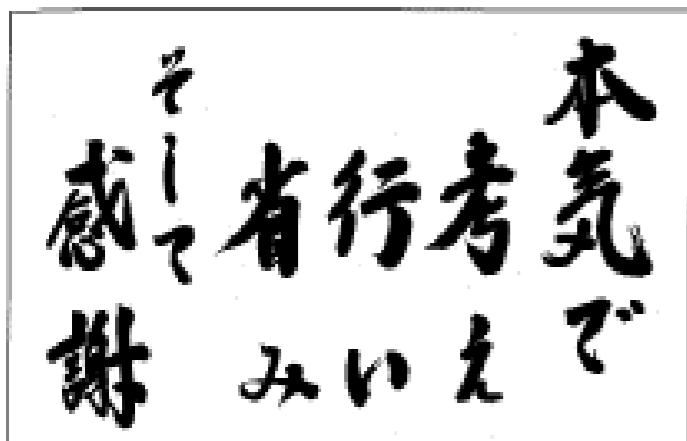 本気で
考え
行い
省み
そして
感謝